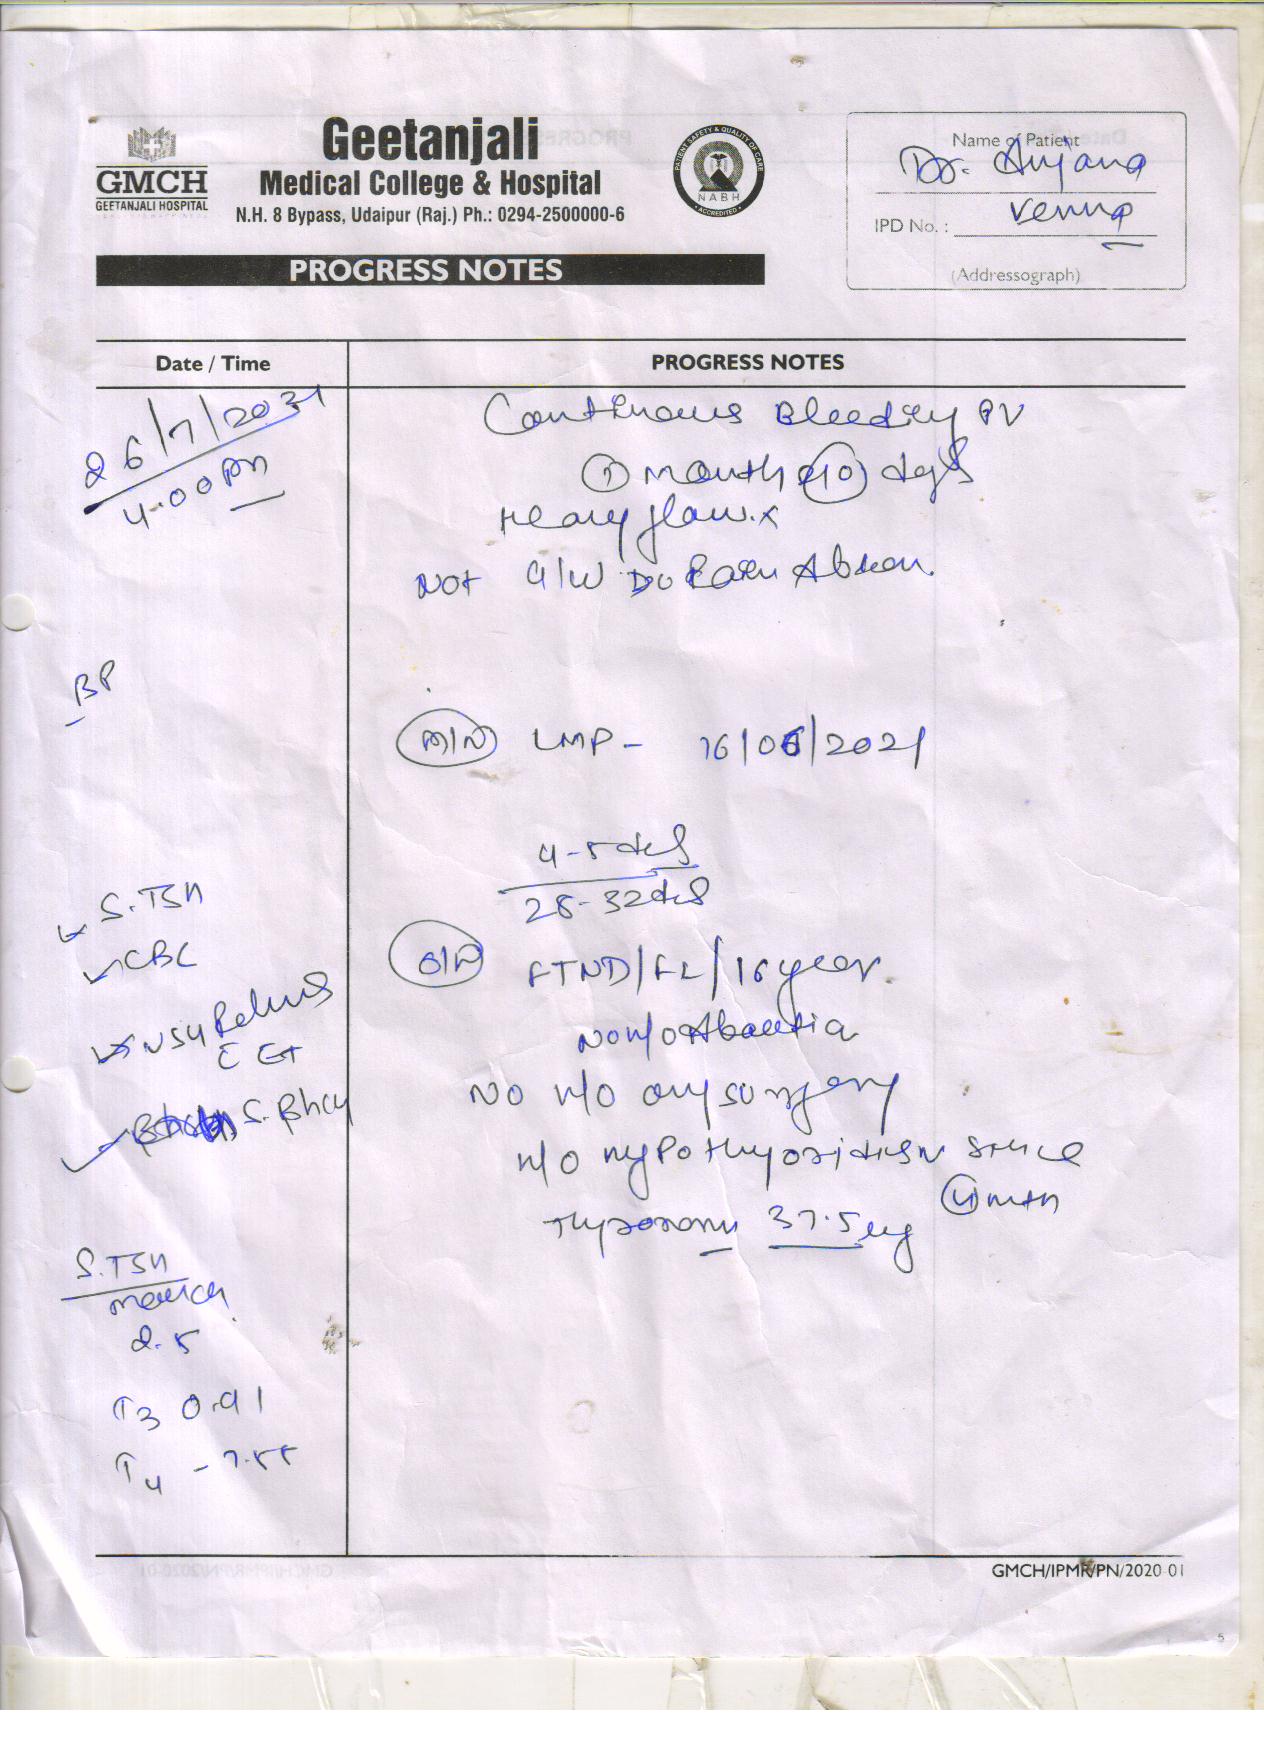 GMCH
GEETANJALI HOSPITAL
Geetanjali
Medical College & Hospital
N.H. 8 Bypass, Udaipur (Raj.) Ph.: 0294-2500000-6
PATIENT SAFETY & QUALITY OF CARE
NABH
ACCREDITED
Name of Patient
Dr. Anjana
IPD No. : Verma
(Addressograph)
PROGRESS NOTES
Date / Time
PROGRESS NOTES
26/7/2021
4.00 pm
Continuous Bleeding PV
1 month 10 days
Heavy flow. x
Not a/w Pain Abdomen.
BP
M/H LMP - 16/06/2021
4-5 days
28-32 days
S.TSH
CBC
O/H FTND/FL/16 year
USG Pelvis
c ET
No H/O Abortion
No H/O any surgery
S. Bhcg
H/O Hypothyroidism since
4 mth
Thyronorm 37.5 ug
S.TSH
March
2.5
T3 0.91
T4 - 7.55
GMCH/IPMR/PN/2020-01
5